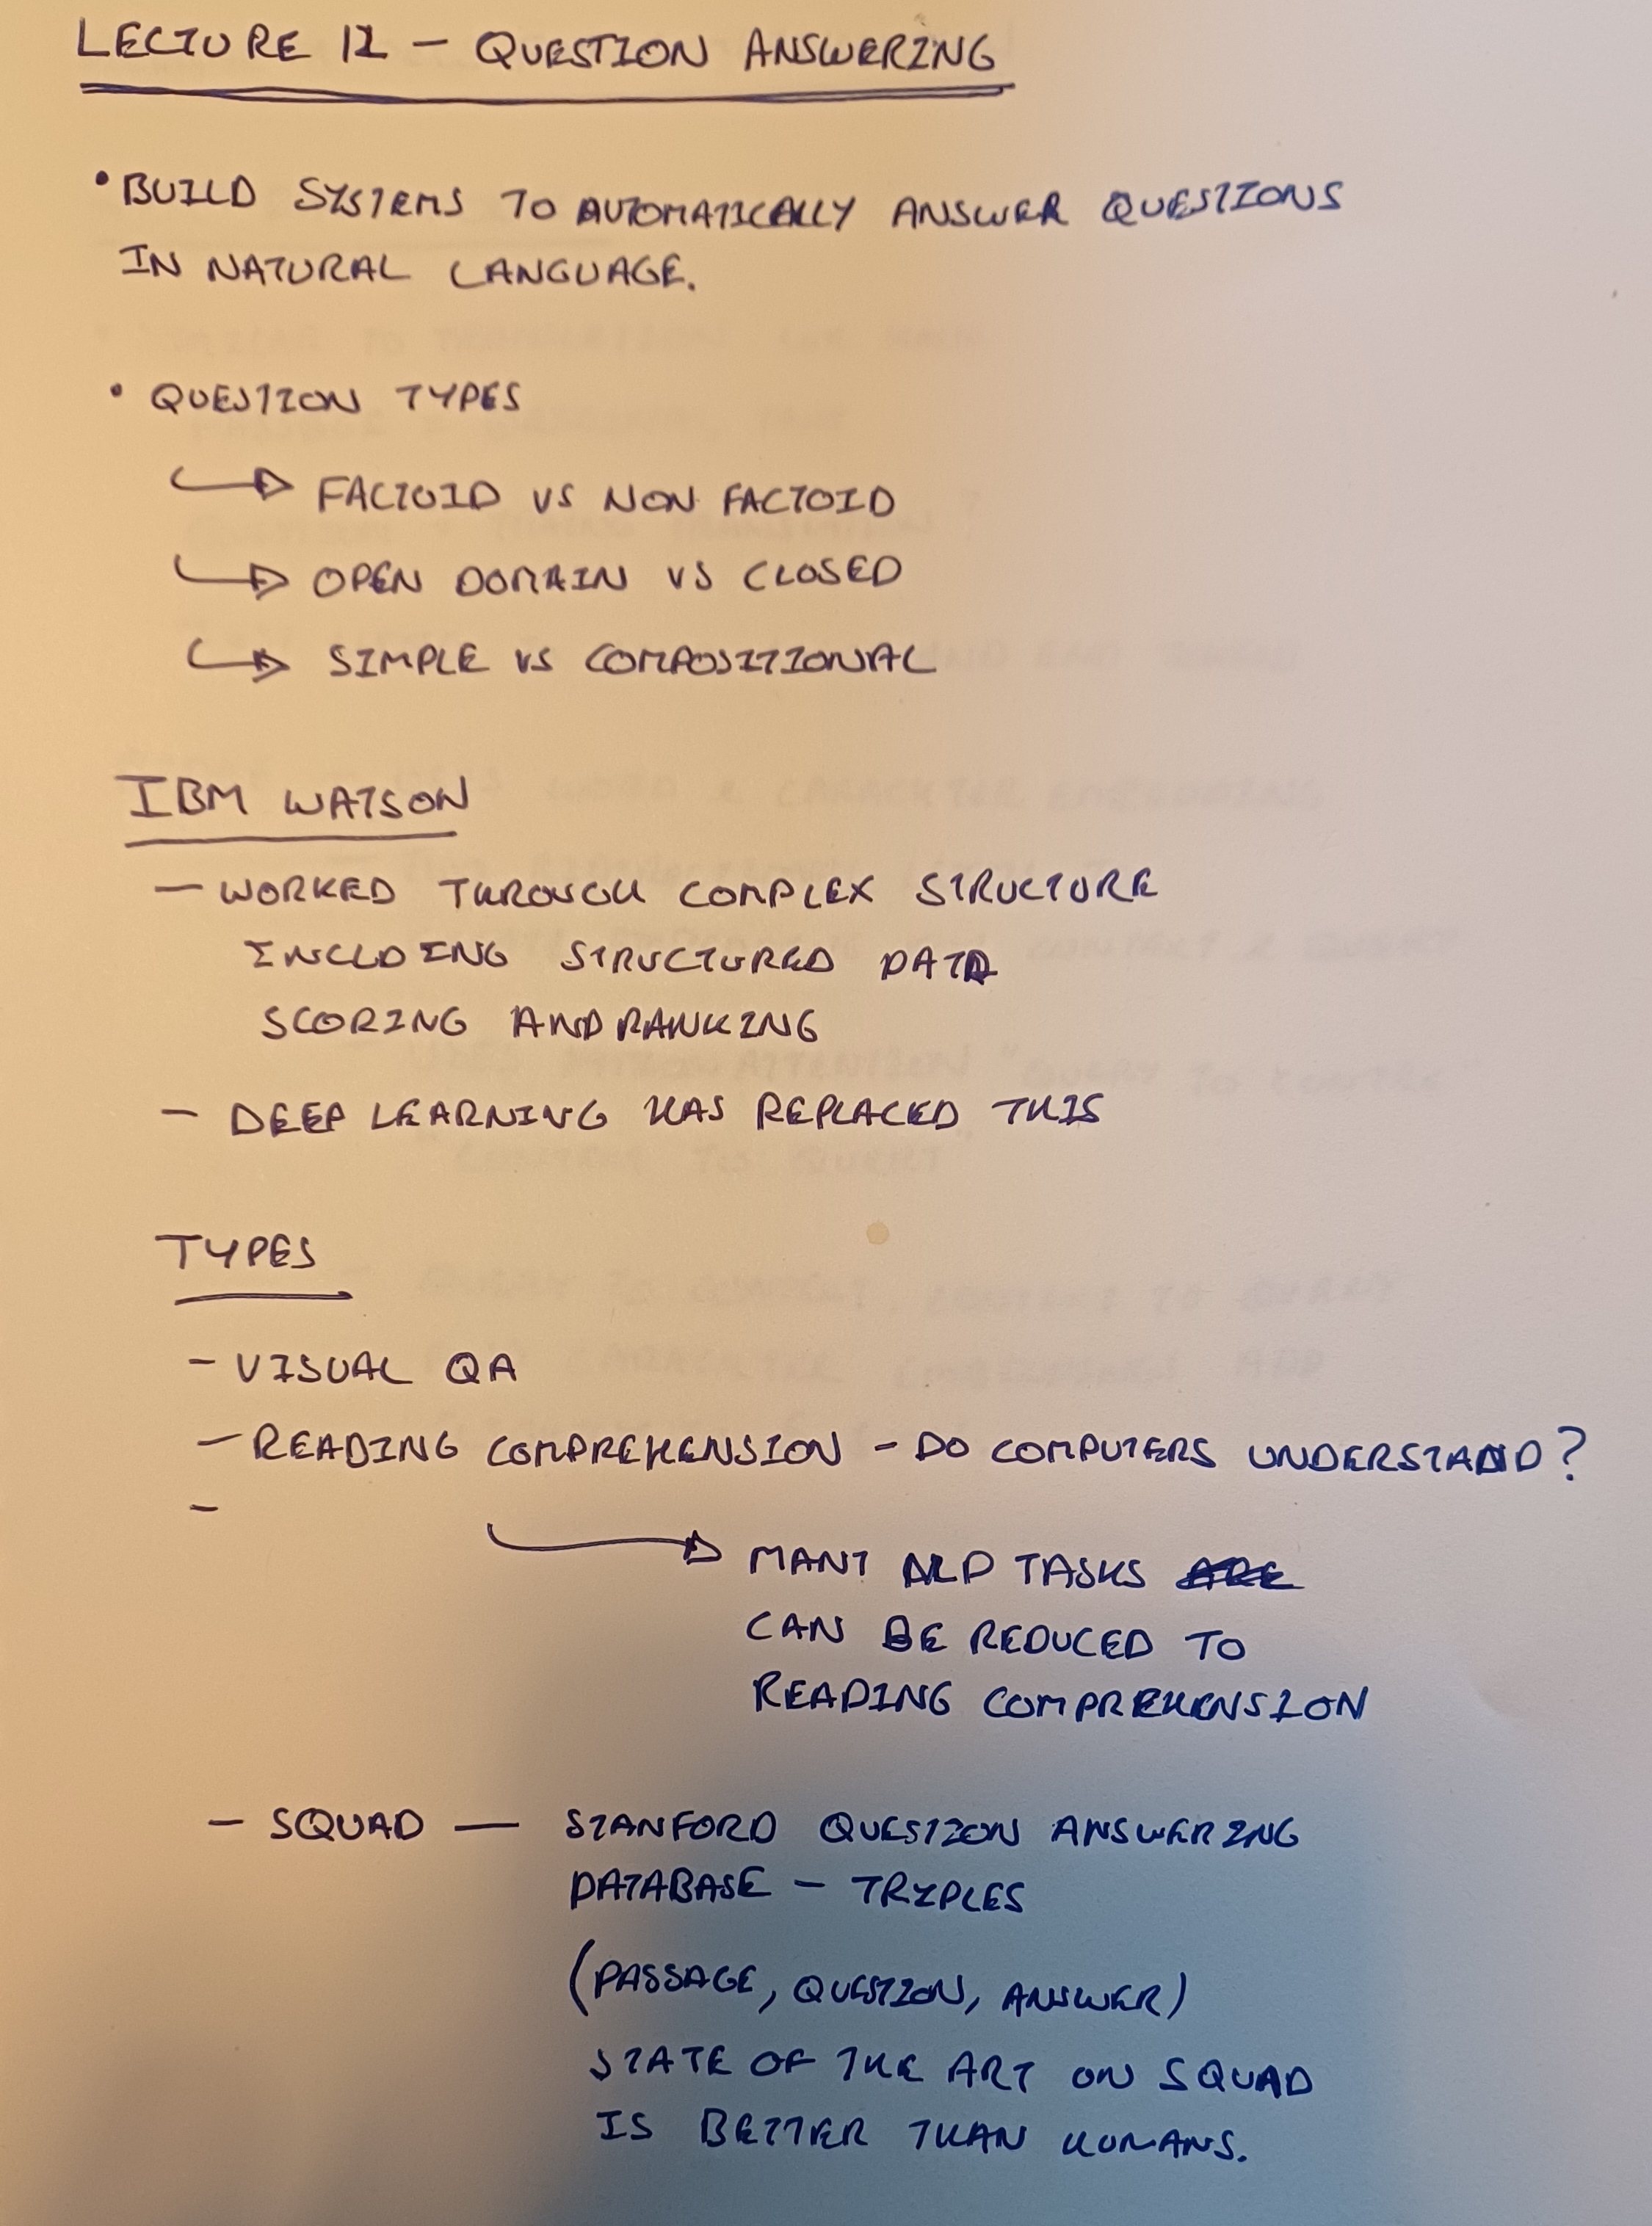 LECTURE 12 - QUESTION ANSWERING
• BUILD SYSTEMS TO AUTOMATICALLY ANSWER QUESTIONS
IN NATURAL LANGUAGE.
• QUESTION TYPES
FACTOID VS NON FACTOID
OPEN DOMAIN VS CLOSED
SIMPLE VS COMPOSITIONAL
IBM WATSON
- WORKED THROUGH COMPLEX STRUCTURE
INCLUDING STRUCTURED DATA
SCORING AND RANKING
- DEEP LEARNING HAS REPLACED THIS
TYPES
- VISUAL QA
- READING COMPREHENSION - DO COMPUTERS UNDERSTAND?
-
MANY NLP TASKS
CAN BE REDUCED TO
READING COMPREHENSION
- SQUAD - STANFORD QUESTION ANSWERING
DATABASE - TRIPLES
(PASSAGE, QUESTION, ANSWER)
STATE OF THE ART ON SQUAD
IS BETTER THAN HUMANS.